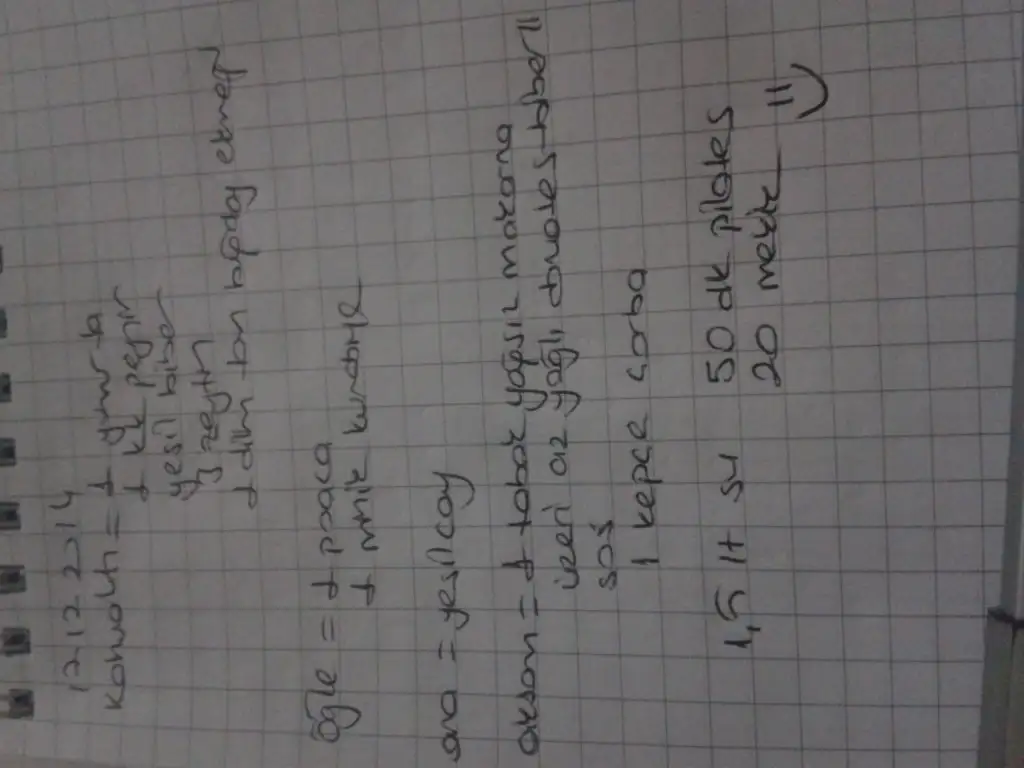 12.12.2014
Kahvaltı = 1 ymrta
1 kt peynir
yeşil biber
yy zeytin
1 dlm tam buğday ekmeği
öğle = 1 poaca
1 mnik kurabiye
ara = yeşilçay
akşam = 1 tabak yağsız makarna
üzeri az yağlı domates-biberli
sos
1 kepçe çorba
1,5 lt su 50 dk pilates
20 mekik